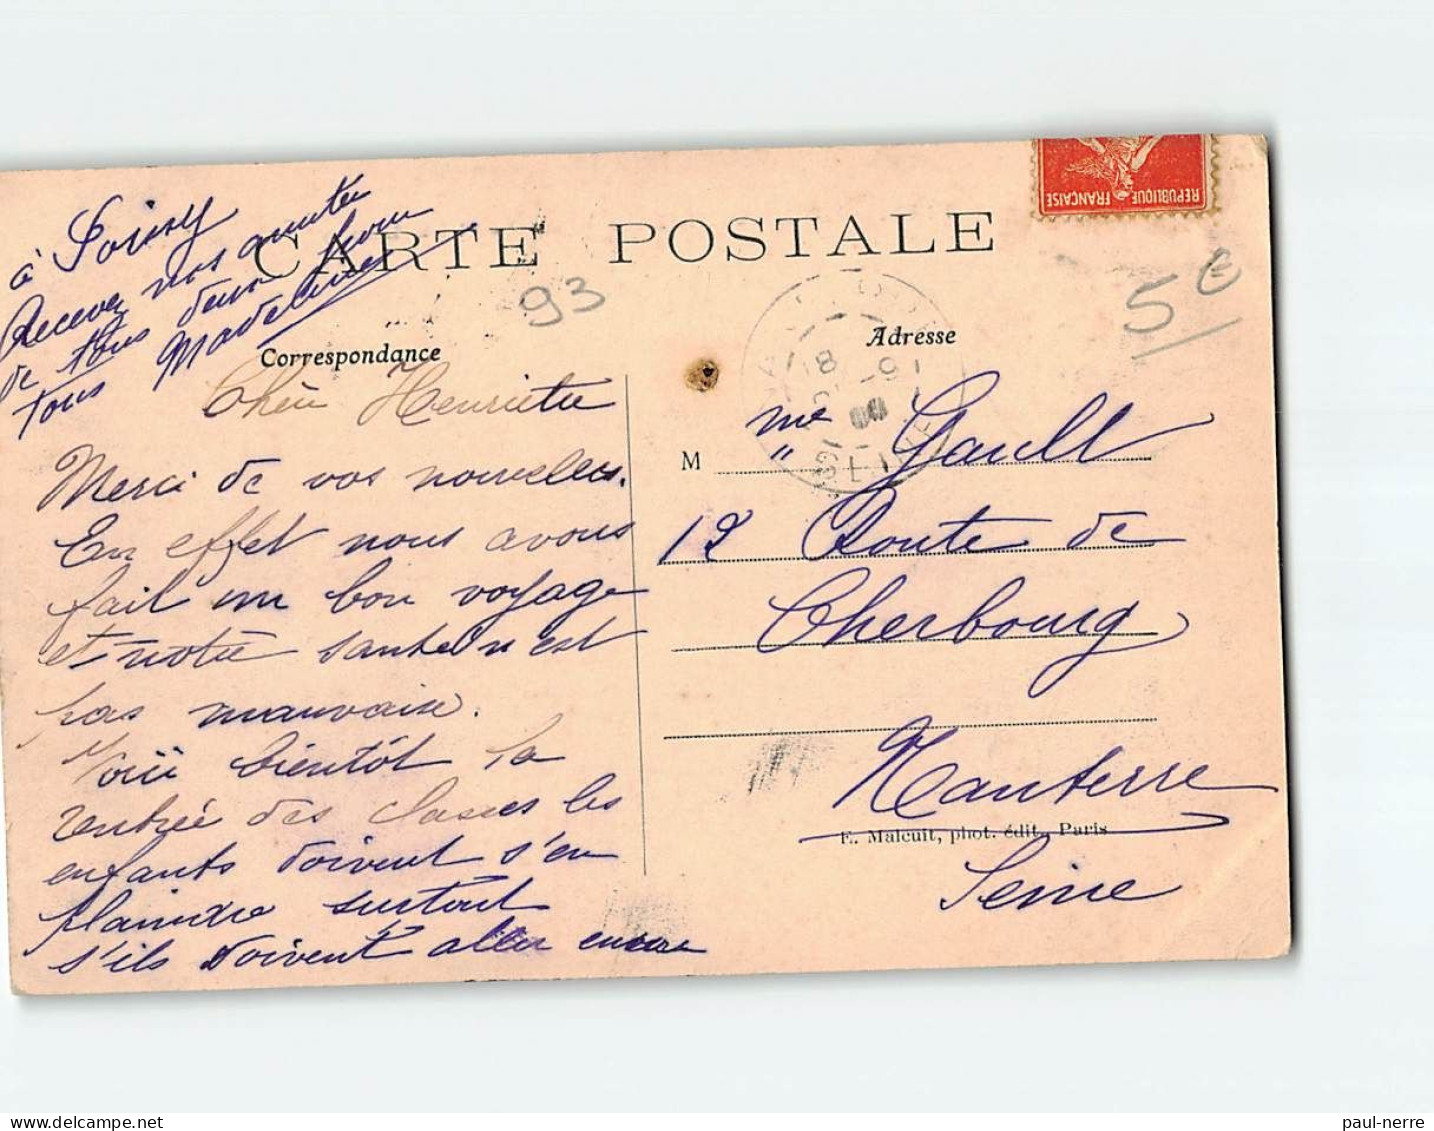 CARTE POSTALE
Correspondance
Adresse
93
5 €
REPUBLIQUE FRANÇAISE
Chère Henriette
Merci de vos nouvelles.
En effet nous avons
fait un bon voyage
et notre santé n'est
pas mauvaise.
Voici bientôt la
rentrée des classes les
enfants doivent s'en
plaindre surtout
s'ils doivent aller encore
à Soisy
Recevez nos amitiés
de tous deux pour
tous Madeleine
M me Gault
12 Route de
Cherbourg
Nanterre
Seine
E. Malcuit, phot. édit. Paris
paul-nerre